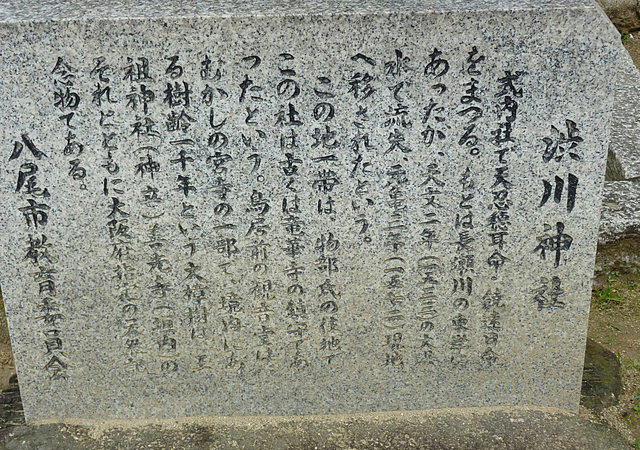 渋川神社
式内社で天忍穂耳命・饒速日命
をまつる。もとは長瀬川の東岸に
あったが、天文二年(一五三三)の大洪
水で流失、元亀三年(一五七二)現地
へ移されたという。
この地一帯は、物部氏の住地で
この社は古くは竜華寺の鎮守であ
ったという。鳥居前の観音堂は
むかしの宮寺の一部で、境内にあ
る樹齢一千年という大樟樹は、
祖神社(神立)善光寺(垣内)の
それとともに大阪府指定の天然記
念物である。
八尾市教育委員会